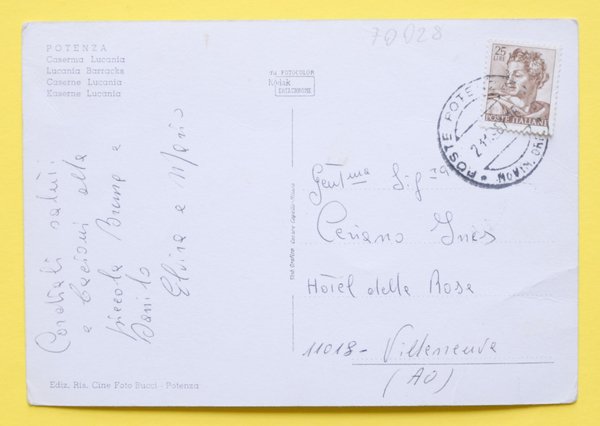 70028
POTENZA
Caserma Lucania
Lucania Barracks
Caserne Lucania
Kaserne Lucania
da FOTOCOLOR
Kodak
EKTACHROME
25
LIRE
POSTE ITALIANE
POSTE POTE
Cordiali saluti
e bacioni alla
piccola Bruna e
Danilo
Elvira e Mario
Gent.ma Sig.ra
Ceriano Ines
Hôtel della Rosa
11018 - Villeneuve
(AO)
Ediz. Ris. Cine Foto Bucci - Potenza